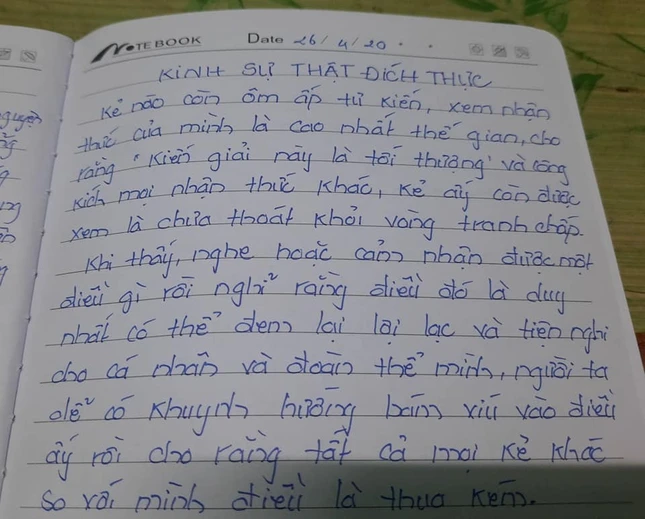 NOTEBOOK Date 26/4/20
KINH SỰ THẬT ĐÍCH THỰC
Kẻ nào còn ôm ấp tư kiến, xem nhận
thức của mình là cao nhất thế gian, cho
rằng "Kiến giải này là tối thượng" và công
kích mọi nhận thức khác, kẻ ấy còn được
xem là chưa thoát khỏi vòng tranh chấp.
Khi thấy, nghe hoặc cảm nhận được một
điều gì rồi nghĩ rằng điều đó là duy
nhất có thể đem lại lợi lạc và tiện nghi
cho cá nhân và đoàn thể mình, người ta
dễ có khuynh hướng bám víu vào điều
ấy rồi cho rằng tất cả mọi kẻ khác
so với mình điều là thua kém.